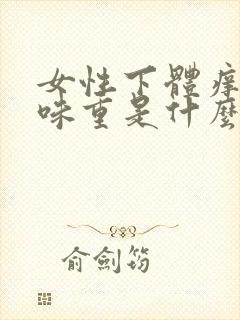 女性下體癢
味重是什麼
俞劍筠